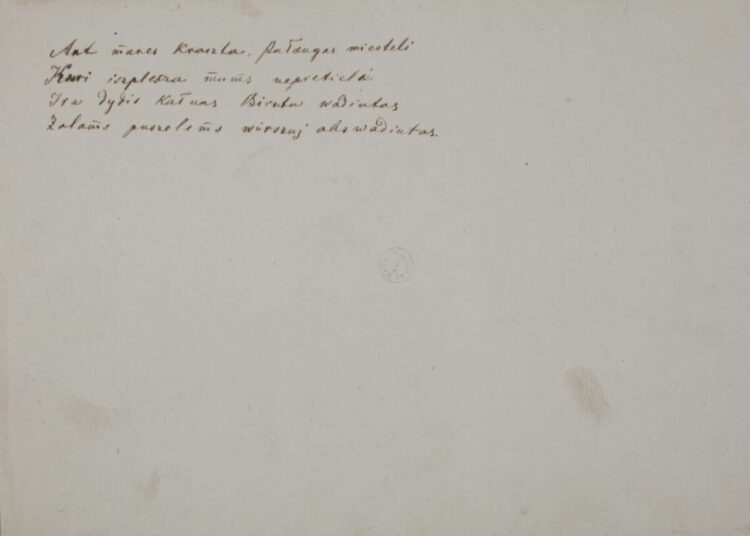 Ant m̄ares Kraszta, Pałangas miesteli
Kuri iszplesza m̄um̄s nepretielá
Ira dydis Kałnas Biruta wadintas
Zalam̄s puszelem̄s wirszuj abswadintas.